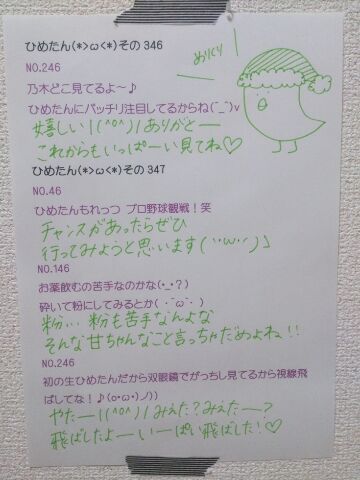 ひめたん(*>ω<*)その346
NO.246
乃木どこ見てるよ～♪
ひめたんにバッチリ注目してるからね(¯_¯)v
嬉しい!(^O^)/ありがとー
これからもいっぱーい見てね♡
ひめたん(*>ω<*)その347
NO.46
ひめたんもれっつ プロ野球観戦！笑
チャンスがあったらぜひ
行ってみようと思います(˙˙ω˙˙)」
NO.146
お薬飲むの苦手なのかな(•_•？)
砕いて粉にしてみるとか( ˙ω˙ )
粉… 粉も苦手なんよな
そんな甘ちゃんなこと言っちゃだめよね!!
NO.246
初の生ひめたんだから双眼鏡でがっちし見てるから視線飛
ばしてな！♪(o•ω•)ノ))
やたー!(^O^)/みえた?みえたー?
飛ばしたよーいーっぱい飛ばした!♡